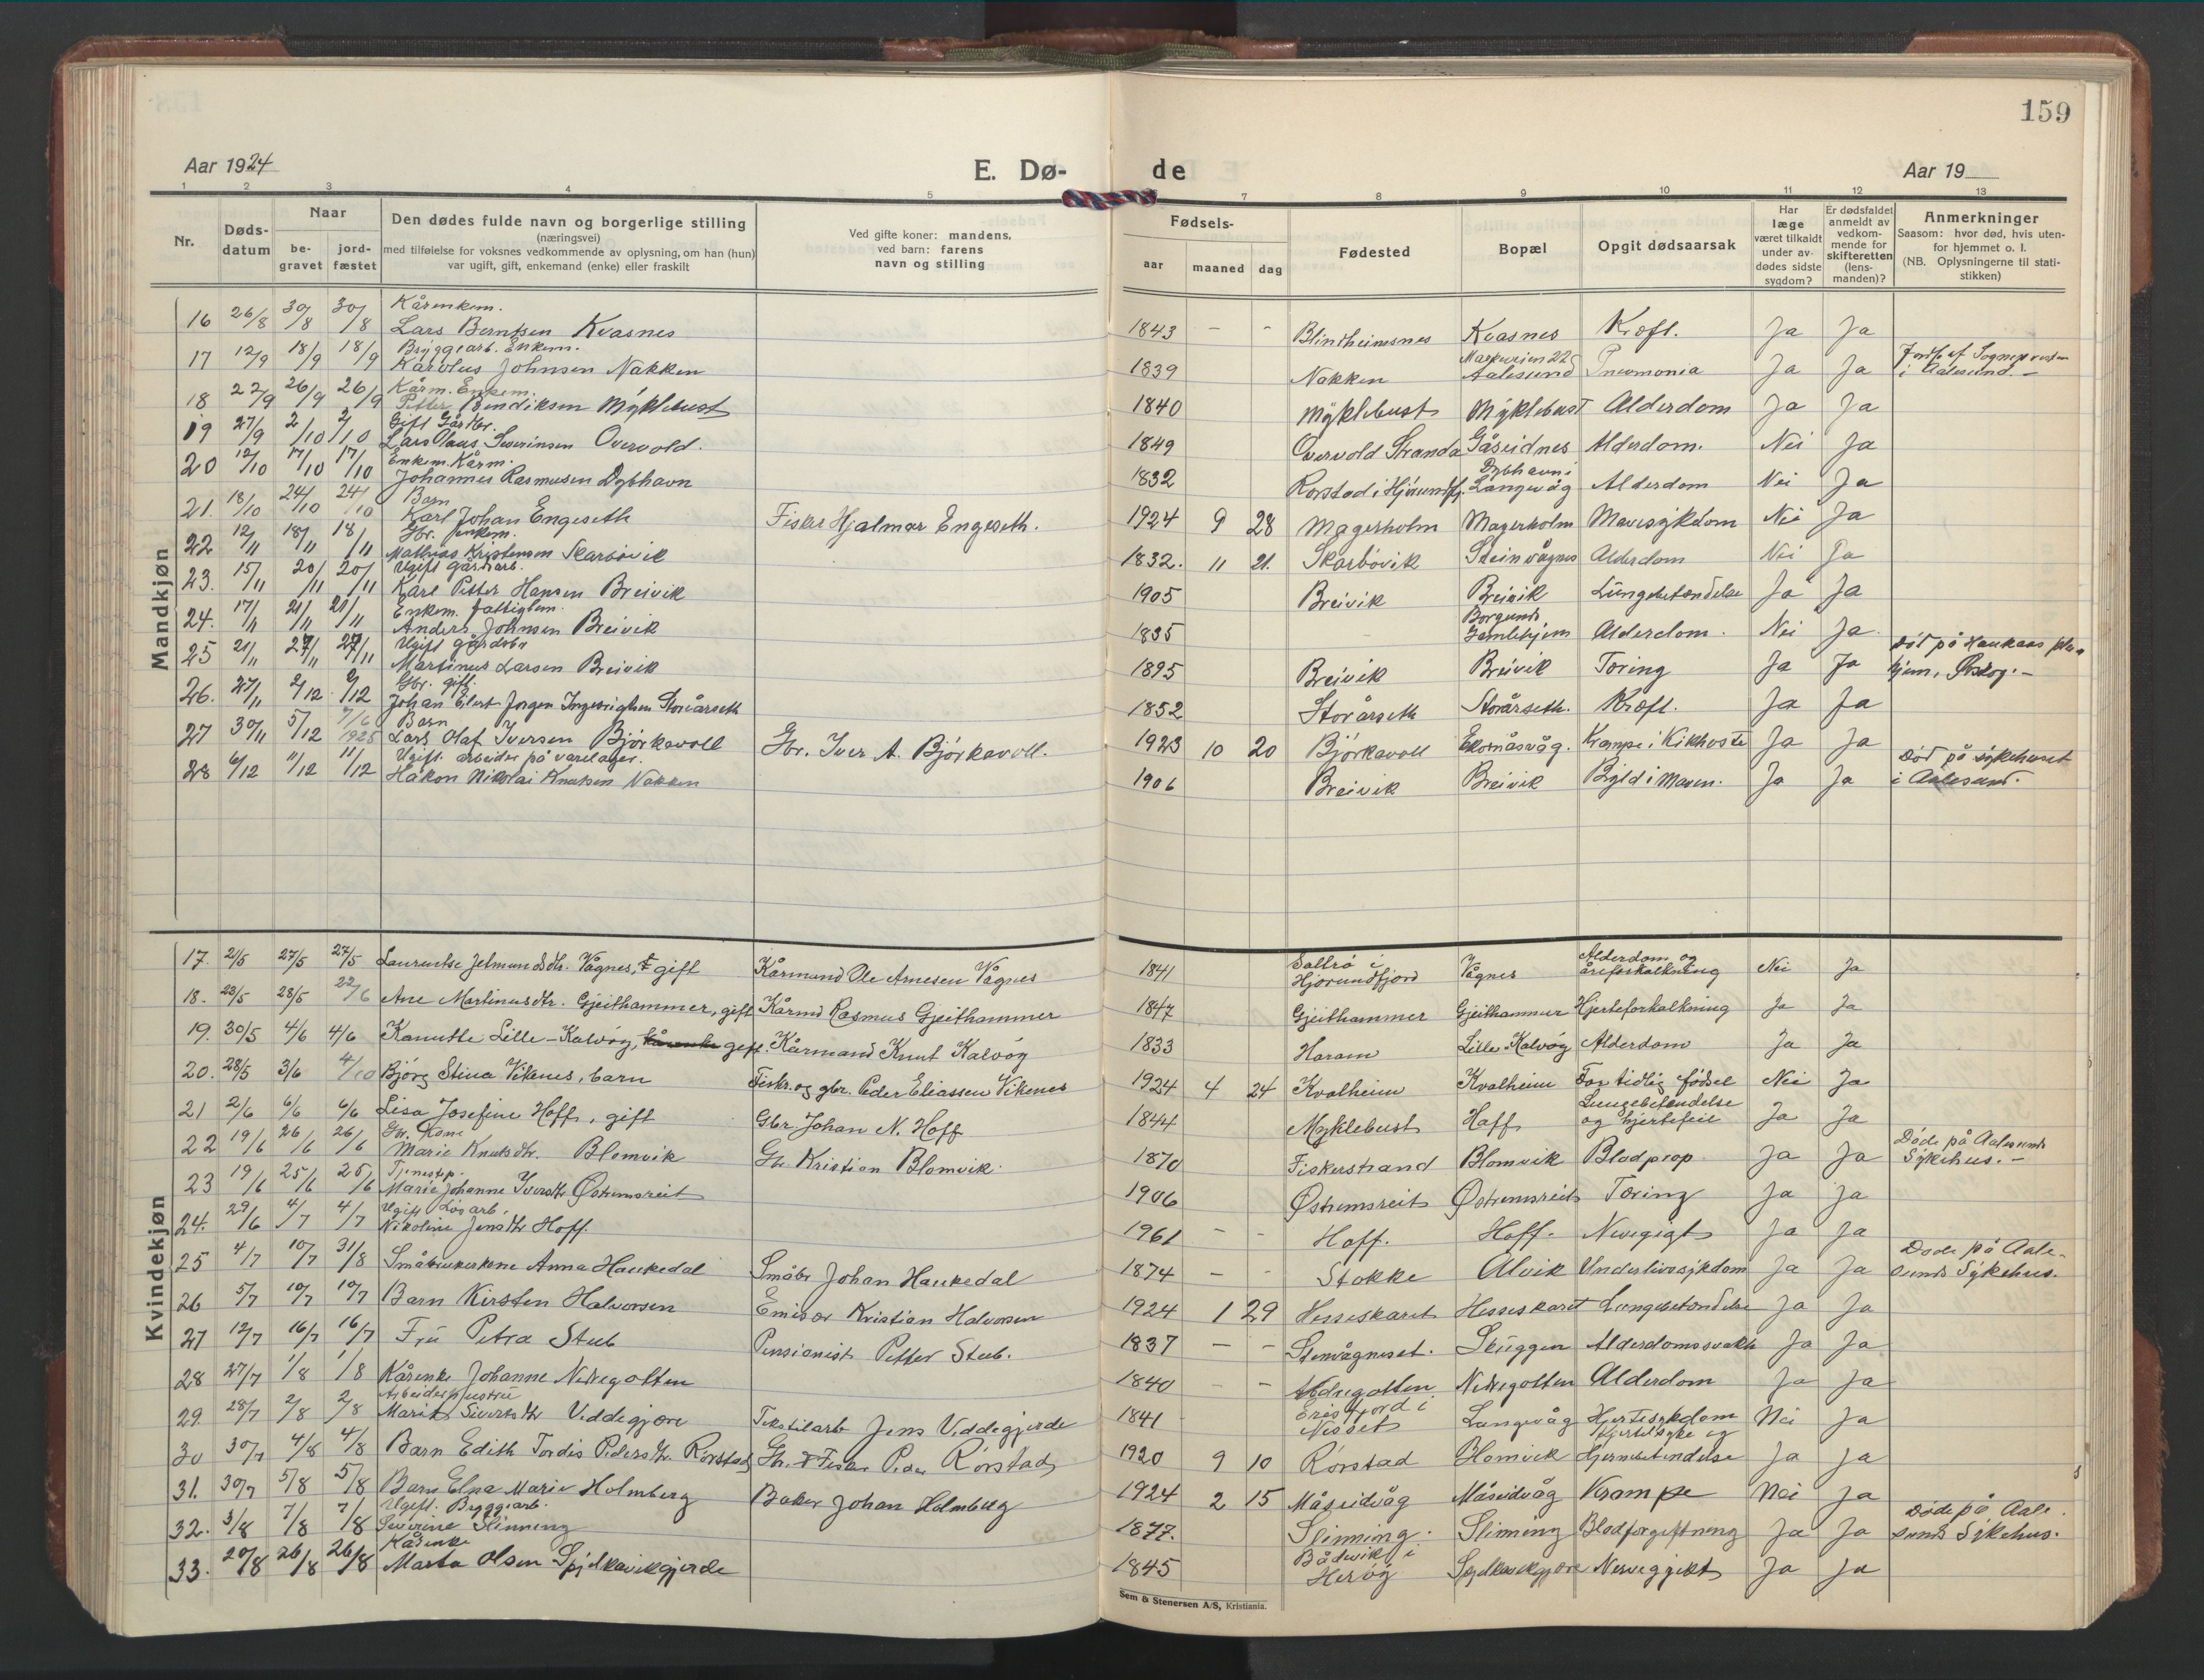 159
Aar 1924
E. Dø-
de
Aar 19
1 2 3 4 5 6 7 8 9 10 11 12 13
Nr.
Døds-
datum
Naar
be-
gravet
jord-
fæstet
Den dødes fulde navn og borgerlige stilling
(næringsvei)
med tilføielse for voksnes vedkommende av oplysning, om han (hun)
var ugift, gift, enkemand (enke) eller fraskilt
Ved gifte koner: mandens,
ved barn: farens
navn og stilling
Fødsels-
aar maaned dag
Fødested
Bopæl
Opgit dødsaarsak
Har
læge
været tilkaldt
under av-
dødes sidste
sygdom?
Er dødsfaldet
anmeldt av
vedkom-
mende for
skifteretten
(lens-
manden)?
Anmerkninger
Saasom: hvor død, hvis uten-
for hjemmet o. l.
(NB. Oplysningerne til stati-
stikken)
Mandkjøn
Kårenkem.
16 26/8 30/8 30/8 Lars Berntsen Kvasnes 1843 - - Blindheimsnes Kvasnes Kræft. Ja Ja
Bryggearb. Enkem.
17 12/9 18/9 18/9 Karolus Johnsen Nakken 1839 Nakken Aalesund Pneumonia Ja Ja i Aalesund. -
Kårm. Enkem.
18 22/9 26/9 26/9 Petter Bendiksen Myklebust 1840 Myklebust Myklebust Alderdom Ja Ja
Gift
19 27/9 2/10 2/10 Lars Olaus Severinsen Overvold. 1849 Overvold Stranda Gåseidnes Alderdom. Nei Ja
Enkem. Kårm.
20 12/10 17/10 17/10 Johannes Rasmusen Dybhavn 1832 Rørstad i Hjørundfj. Dybhavn i Langevåg Alderdom Nei Ja
Barn
21. 18/10 24/10 24/10 Karl Johan Engeseth Fisker Hjalmar Engeseth. 1924 9 28 Magerholm Magerholm Mavesykdom Nei Ja
Gbr. Enkem.
22 12/11 18/11 18/11 Mathias Kristensen Skarbøvik 1832. 11 21. Skarbøvik Steinvågnes Alderdom Nei Ja
Ugift gårdarb.
23. 15/11 20/11 20/11 Karl Petter Hansen Breivik 1905 Breivik Breivik Lungebetændelse Ja Ja
Enkem. fattiglem.
24. 17/11 21/11 21/11 Anders Johnsen Breivik 1835 Borgunds Gamlehjem Alderdom. Nei Ja
Ugift
25 21/11 27/11 27/11 Martinus Larsen Breivik 1895 Breivik Breivik Tæring Ja Ja Død på Haukaas pleie hjem,
Gbr. gift.
26. 27/11 2/12 2/12 Johan Elert Jørgen Storårseth 1852 Storårseth Storårseth. Kræft. Ja Ja
Barn
27 30/11 5/12 7/6 1925 Lars Olaf Iversen Bjørkavoll Gbr. Iver A. Bjørkavoll. 1923 10 20 Bjørkavoll Ekornåsvåg. Krampe i Kikhoste Ja Ja
Ugift. arbeider på varelager.
28 6/12 11/12 11/12 Håkon Nikolai Knutsen Nakken 1906 Breivik Breivik Byld i Maven. Ja Ja Død på sykehuset i Aalesund.
Kvindekjøn
17. 21/5 27/5 27/5 Laurentse Jelmundsdtr. Vågnes, gift Kårmand Ole Arnesen Vågnes 1841 Sæltrø i Hjørundfjord Vågnes Alderdom og åreforkalkning Nei Ja
18. 23/5 28/5 22/6 Ane Martinusdtr. Gjeithammer, gift Kårmd Rasmus Gjeithammer 1847 Gjeithammer Gjeithammer Hjerteforkalkning Ja Ja
19. 30/5 4/6 4/6 Kanutte Lille-Kalvøy, gift. Kårmand Knut Kalvøy 1833 Haram Lille Kalvøy Alderdom Ja Ja
20. 28/5 3/6 4/10 Bjørg Stina Vikenes, barn Fisker og gbr. Peder Eliassen Vikenes 1924 4 24 Kvalheim Kvalheim For tidlig fødsel Nei Ja
21 2/6 6/6 6/6 Lisa Josefine Hoff, gift Gbr Johan N. Hoff 1844 Myklebust Hoff Lungebetendelse og hjertefeil Ja Ja
Gbr. Kone
22 19/6 26/6 26/6 Marie Knutsdtr. Blomvik Gbr Kristian Blomvik. 1870 Fiskerstrand Blomvik Blodprop Ja Ja Døde på Aalesunds Sykehus. -
Tjenestep.
23 19/6 25/6 25/6 Marie Johanne Iversdtr Østremsreit 1906 Østremsreit Østremsreit Tæring Ja Ja
Ugift Løsarb.
24. 29/6 4/7 4/7 Nikoline Jensdtr Hoff. 1961 - - Hoff. Hoff. Nervegigt Ja Ja
25 4/7 10/7 31/8 Småbrukerkone Anna Haukedal Småbr Johan Haukedal 1874 - - Stokke Alvik Underlivssykdom Ja Ja Døde på Aale- sunds Sykehus.
26 5/7 10/7 10/7 Barn Kirsten Halvorsen Emisær Kristian Halvorsen 1924 1 29 Hesseskaret Hesseskaret Lungebetændelse Ja Ja
27 12/7 16/7 16/7 Fru Petra Stub Pensionist Petter Stub. 1837 - - Stenvågneset. Skuggen Alderdomssvakh Ja Ja
28 27/7 1/8 1/8 Kårenke Johanne Nedregotten 1840 - - Nedregotten Nedregotten Alderdom Ja Ja
Arbeiderhustru
29. 28/7 2/8 2/8 Marit Sivertsdtr Viddegjære Tekstilarb Jens Viddegjerde 1841 Erisfjord i Nesset Langevåg Hjertesykdom Nei Ja
30 30/7 4/8 4/8 Barn Edith Tordis Pedersdtr Rørstad Gbr. & Fisker Peder Rørstad 1920 9 10 Rørstad Blomvik Hjertesyke og Hjernebetendelse Ja Ja
31. 30/7 5/8 5/8 Barn Elna Marie Holmberg Baker Johan Holmberg 1924 2 15 Måseidvåg Måseidvåg Krampe Nei Ja
Ugift. Byggearb.
32. 3/8 7/8 7/8 Severine Slinning 1877. Slinning. Slinning Blodforgiftning Ja Ja Døde på Aale- sunds Sykehus.
Kårenke
33. 20/8 26/8 26/8 Marta Olsen Spjelkavikgjerde 1845 Bådsvik i Herøy Spjelkavikgjære Nervegigt Ja Ja
Sem & Stenersen A/S, Kristiania.